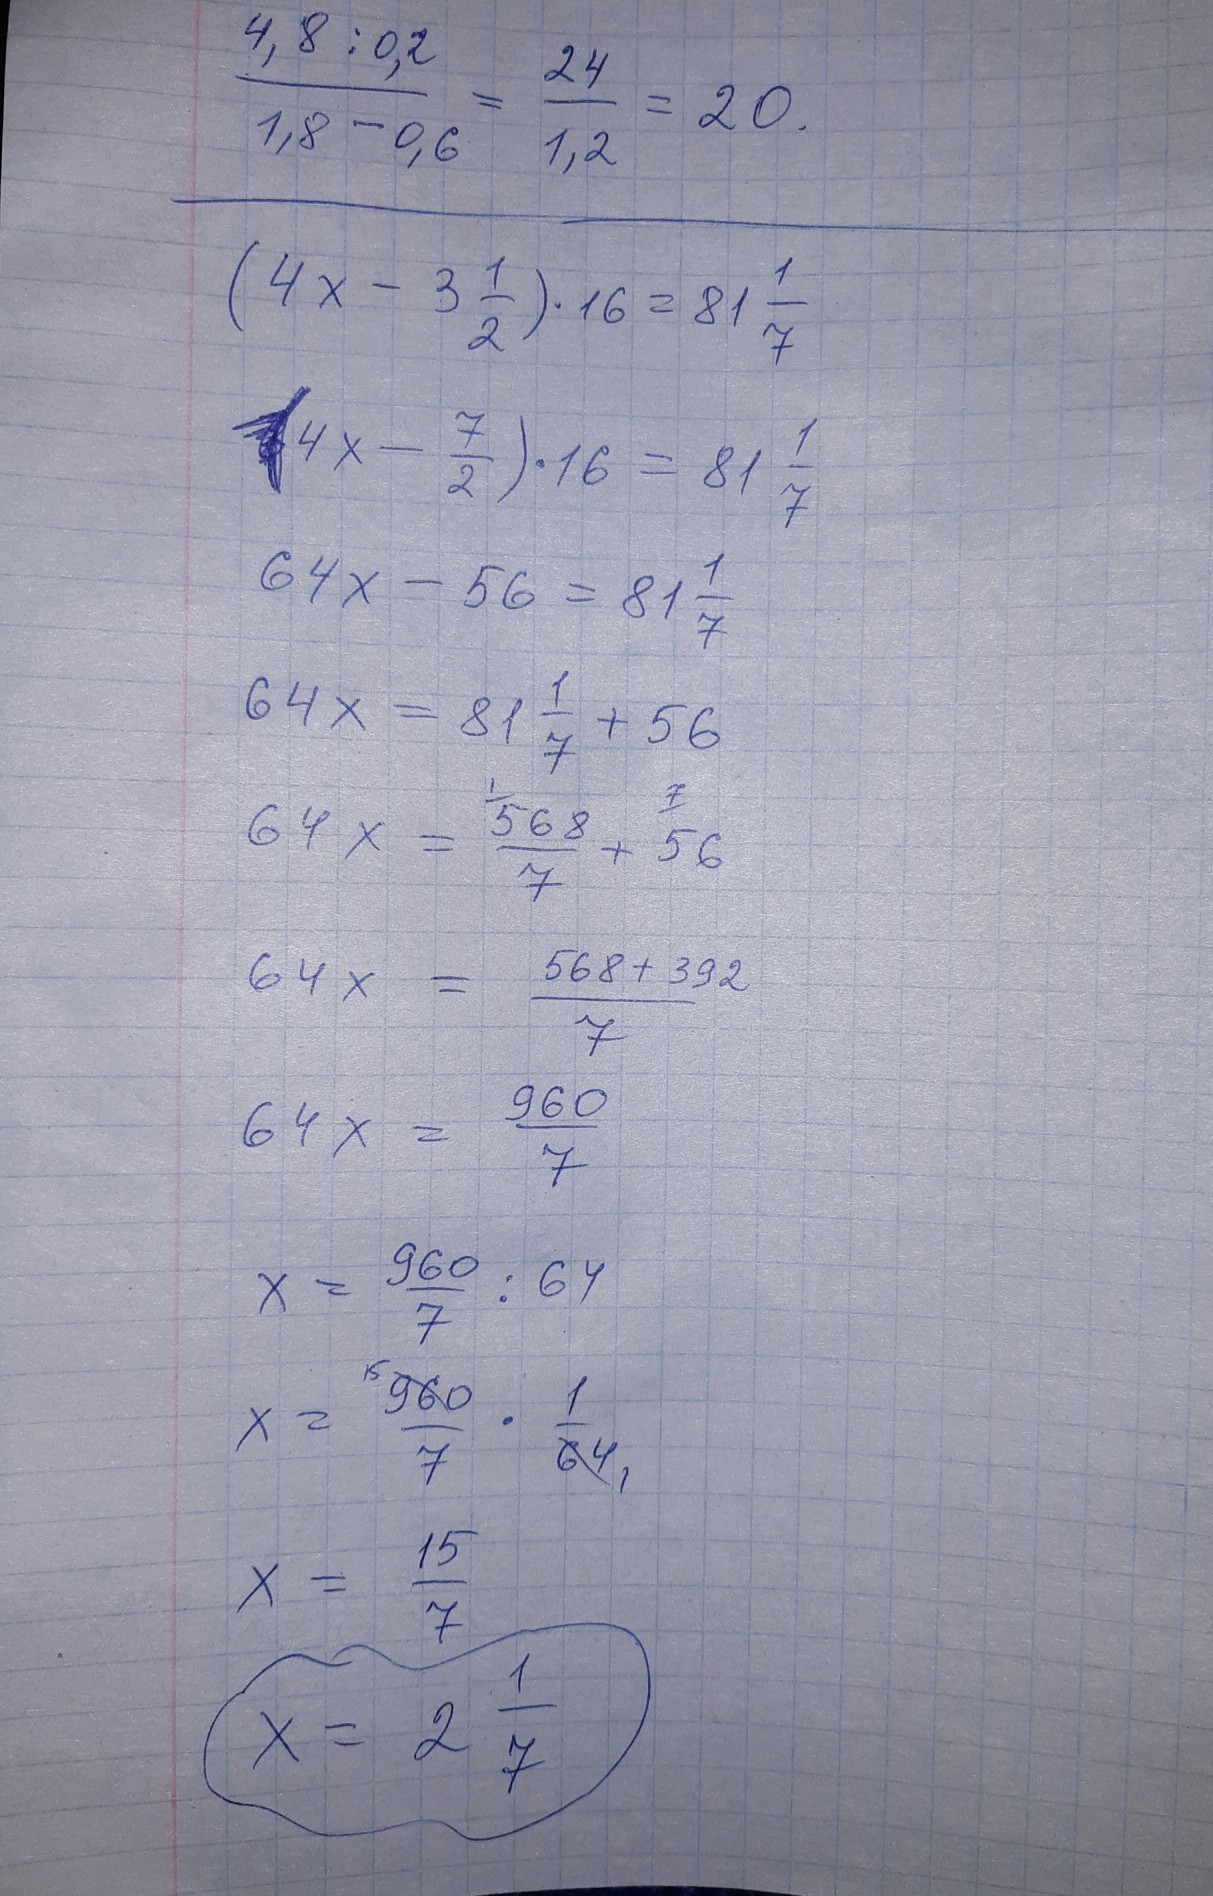 4,8 : 0,2 / 1,8 − 0,6 = 24/1,2 = 20.
(4x − 3 1/2) · 16 = 81 1/7
(4x − 7/2) · 16 = 81 1/7
64x − 56 = 81 1/7
64x = 81 1/7 + 56
64x = ¹⁄568/7 + ⁷⁄56
64x = 568 + 392 / 7
64x = 960/7
x = 960/7 : 64
x = ¹⁵960/7 · 1/64₁
x = 15/7
x = 2 1/7